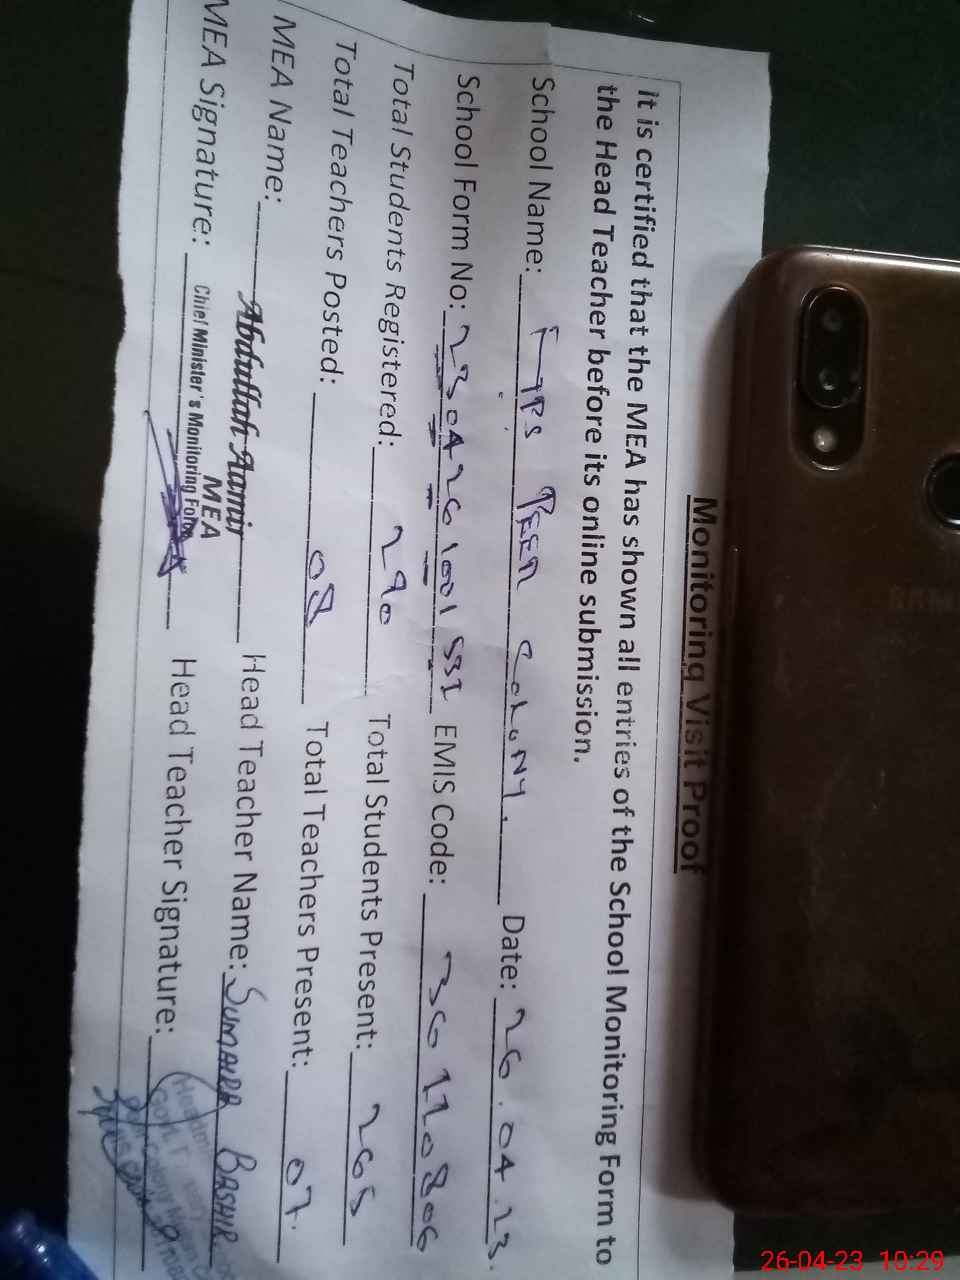 Monitoring Visit Proof
it is certified that the MEA has shown all entries of the School Monitoring Form to
the Head Teacher before its online submission.
School Name: PEER COLONY. Date: 26.04.23.
School Form No: 2304261001531 EMIS Code: 36110806
Total Students Registered: 290 Total Students Present: 265
Total Teachers Posted: 08 Total Teachers Present: 07.
MEA Name: Abdullah Aamir Head Teacher Name: SUMAIRA BASHIR
MEA
MEA Signature: Chief Minister's Monitoring Force Head Teacher Signature:
26-04-23 10:29